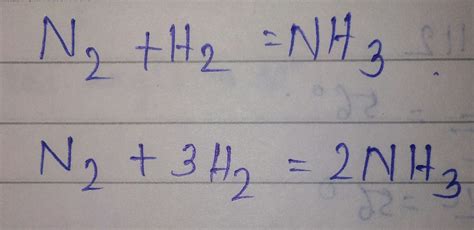 N₂ + H₂ = NH₃
N₂ + 3H₂ = 2NH₃